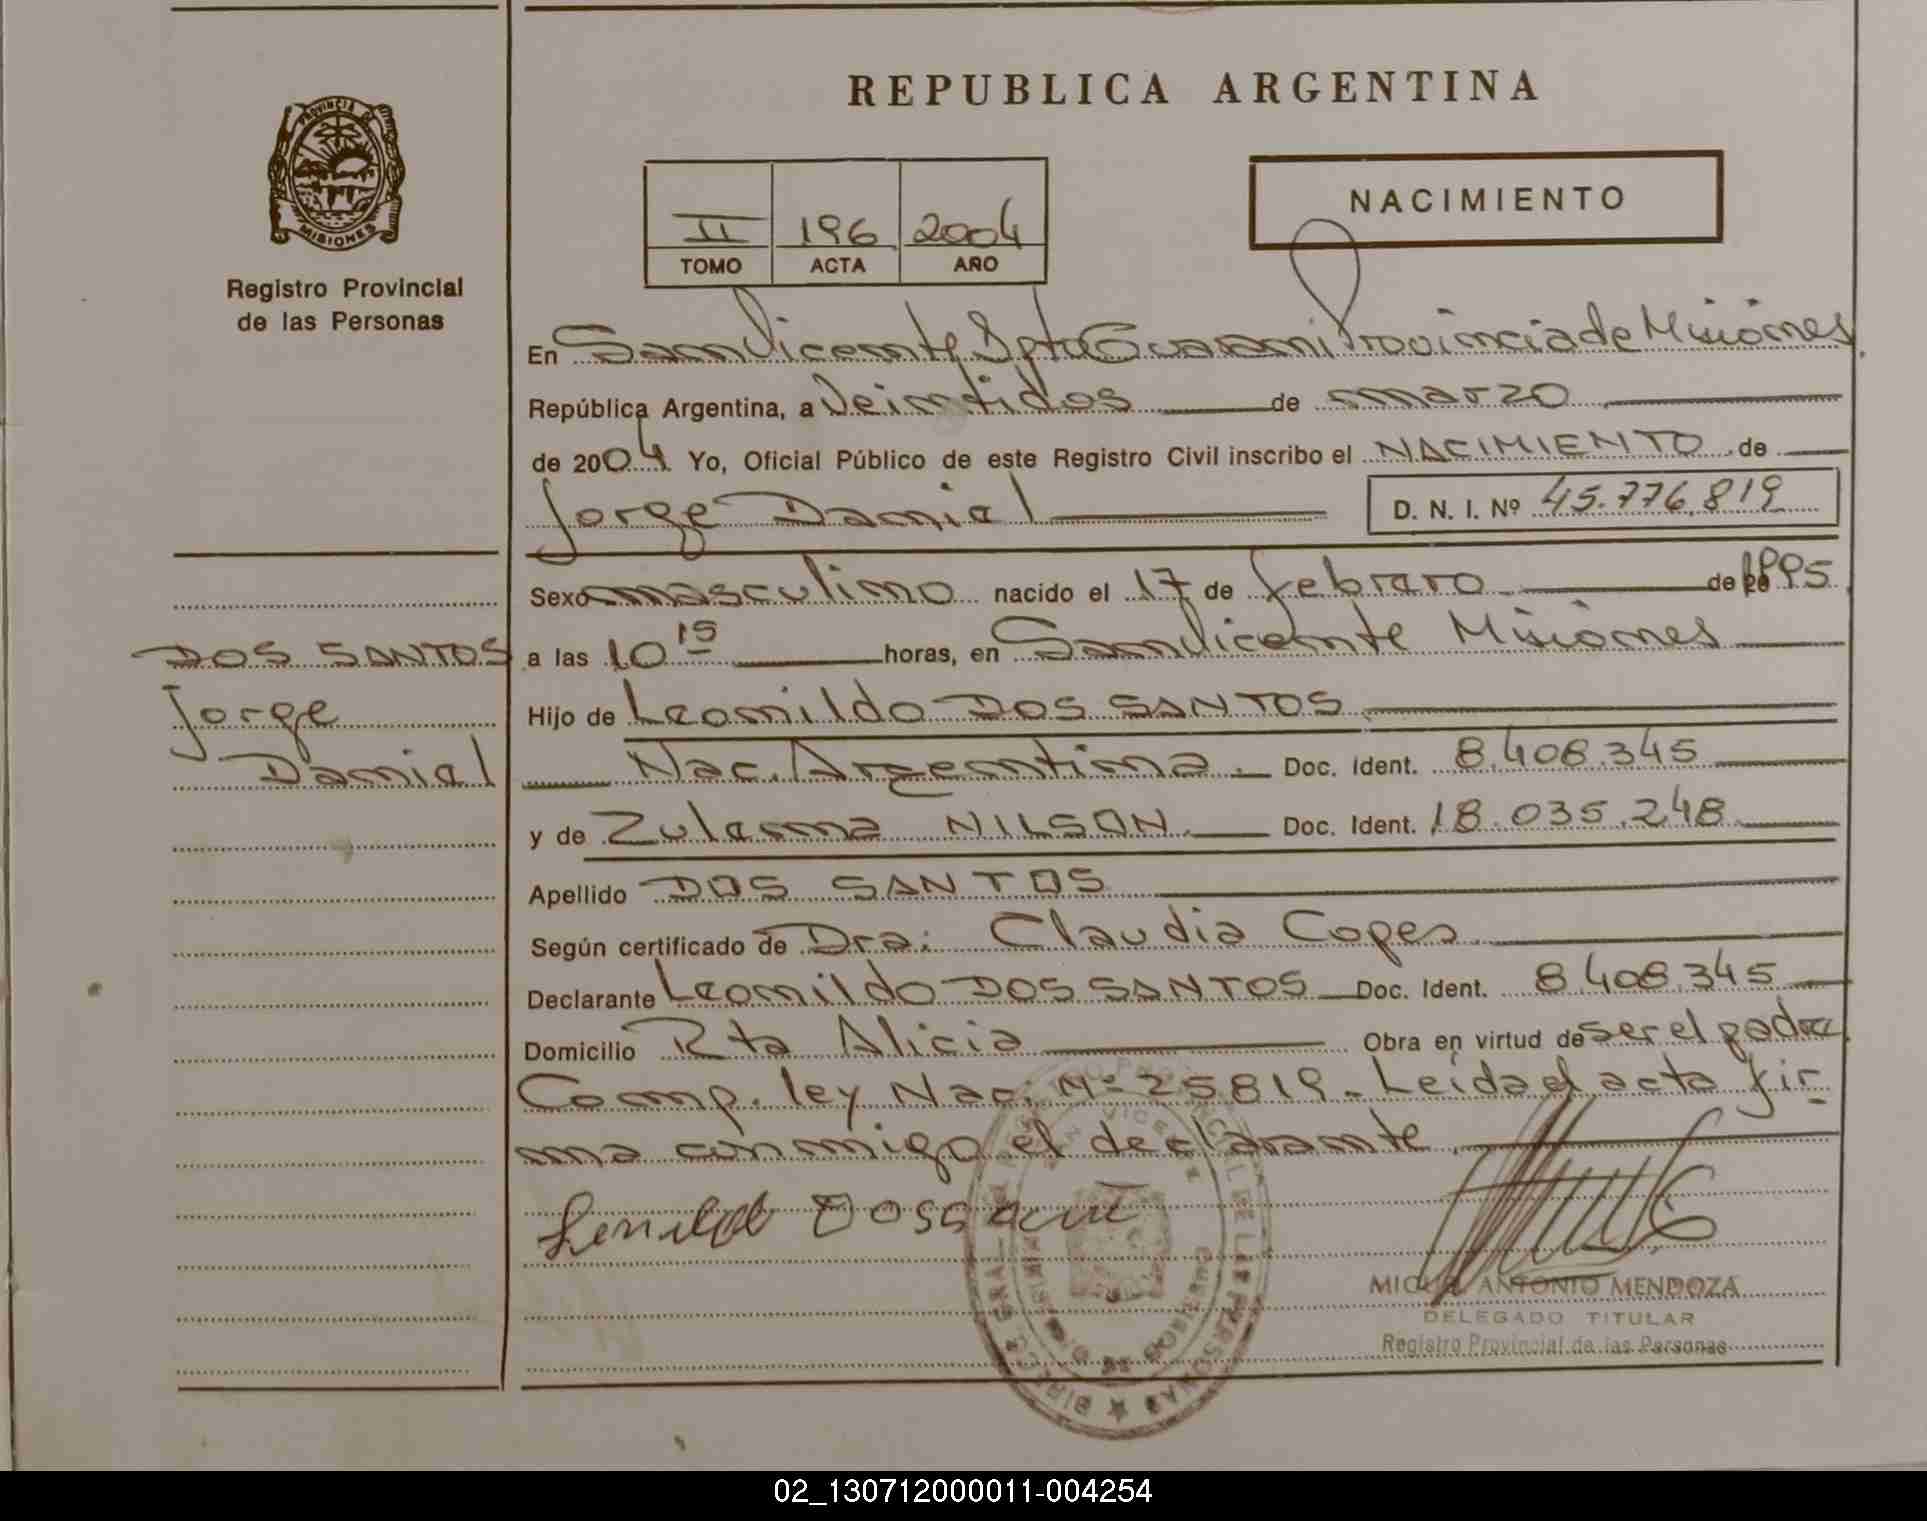 REPUBLICA ARGENTINA
PROVINCIA DE
MISIONES
Registro Provincial
de las Personas
NACIMIENTO
II 196 2004
TOMO ACTA AÑO
En San Vicente Dpto Guaraní Provincia de Misiones
República Argentina, a Veintidos de marzo
de 2004 Yo, Oficial Público de este Registro Civil inscribo el NACIMIENTO de
Jorge Daniel D. N. I. Nº 45.776.819
Sexo masculino nacido el 17 de febrero de 1995
DOS SANTOS
Jorge
Daniel
a las 10 15 horas, en San Vicente Misiones
Hijo de Leonildo DOS SANTOS
Nac. Argentina. Doc. Ident. 8.408.345
y de Zulema NILSON. Doc. Ident. 18.035.248
Apellido DOS SANTOS
Según certificado de Dra. Claudia Copes
Declarante Leonildo DOS SANTOS Doc. Ident. 8.408.345
Domicilio Rta Alicia Obra en virtud de ser el padre
Comp. ley Nac. Nº 25819. Leida el acta fir
ma conmigo el declarante
MIGUEL ANTONIO MENDOZA
DELEGADO TITULAR
Registro Provincial de las Personas
02_130712000011-004254